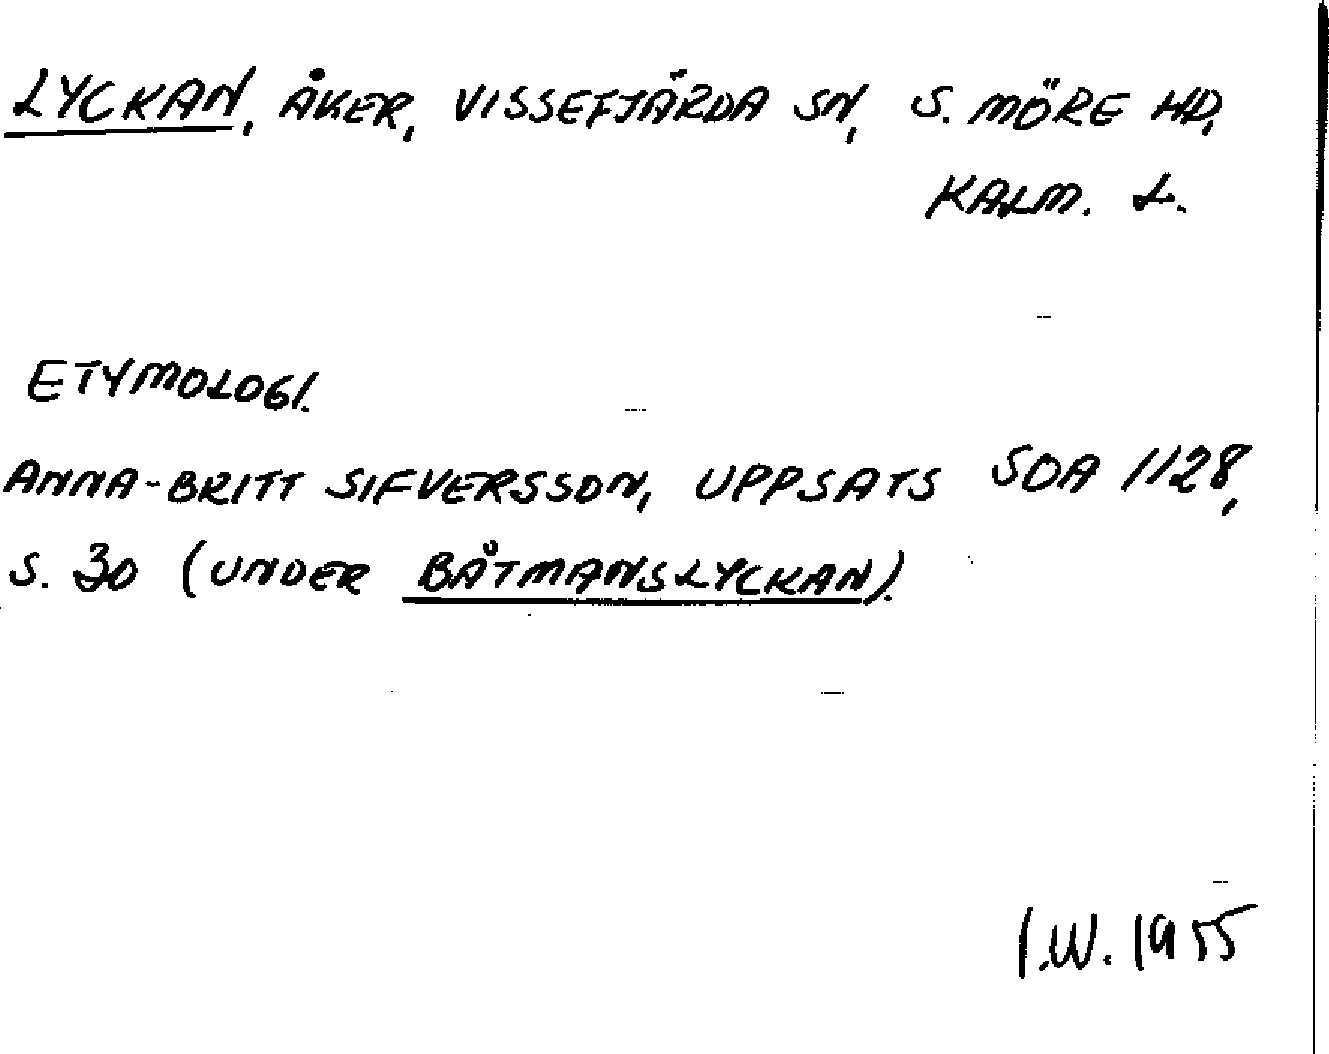 LYCKAN, ÅKER, VISSEFJÄRDA SN, S. MÖRE HD,
KALM. L.
ETYMOLOGI.
ANNA-BRITT SIFVERSSON, UPPSATS SOA 1128,
S. 30 (UNDER BÅTMANSLYCKAN).
I.W. 1955